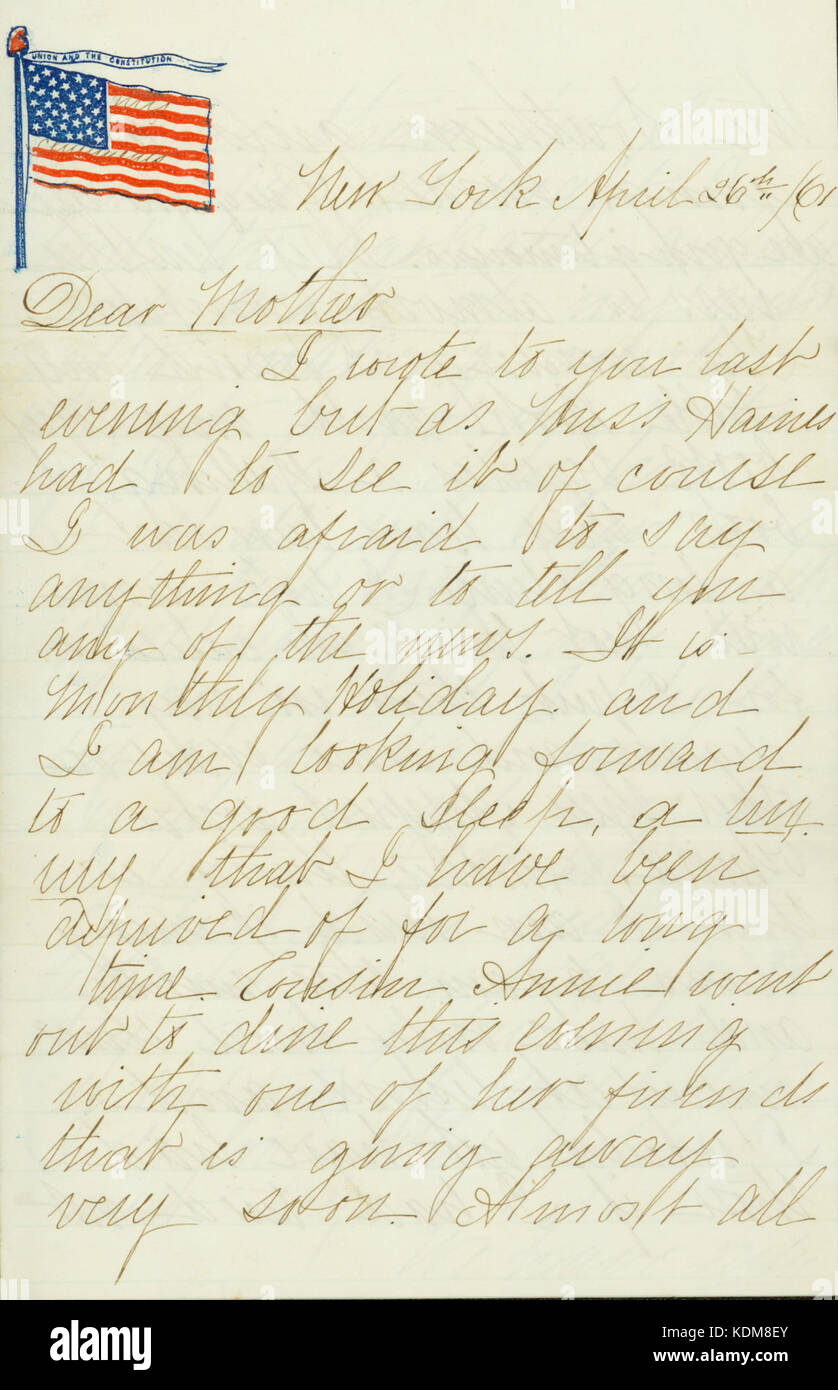 UNION AND THE CONSTITUTION
New York April 26th /61
Dear Mother
I wrote to you last
evening but as Miss Haines
had to see it of course
I was afraid to say
anything or to tell you
any of the news. It is
Monthly Holiday. and
I am looking forward
to a good sleep, a lux
ury that I have been
deprived of for a long
time. Cousin Annie went
out to dine this evening
with one of her friends
that is going away
very soon. Almost all
alamy
Image ID: KDM8EY
www.alamy.com